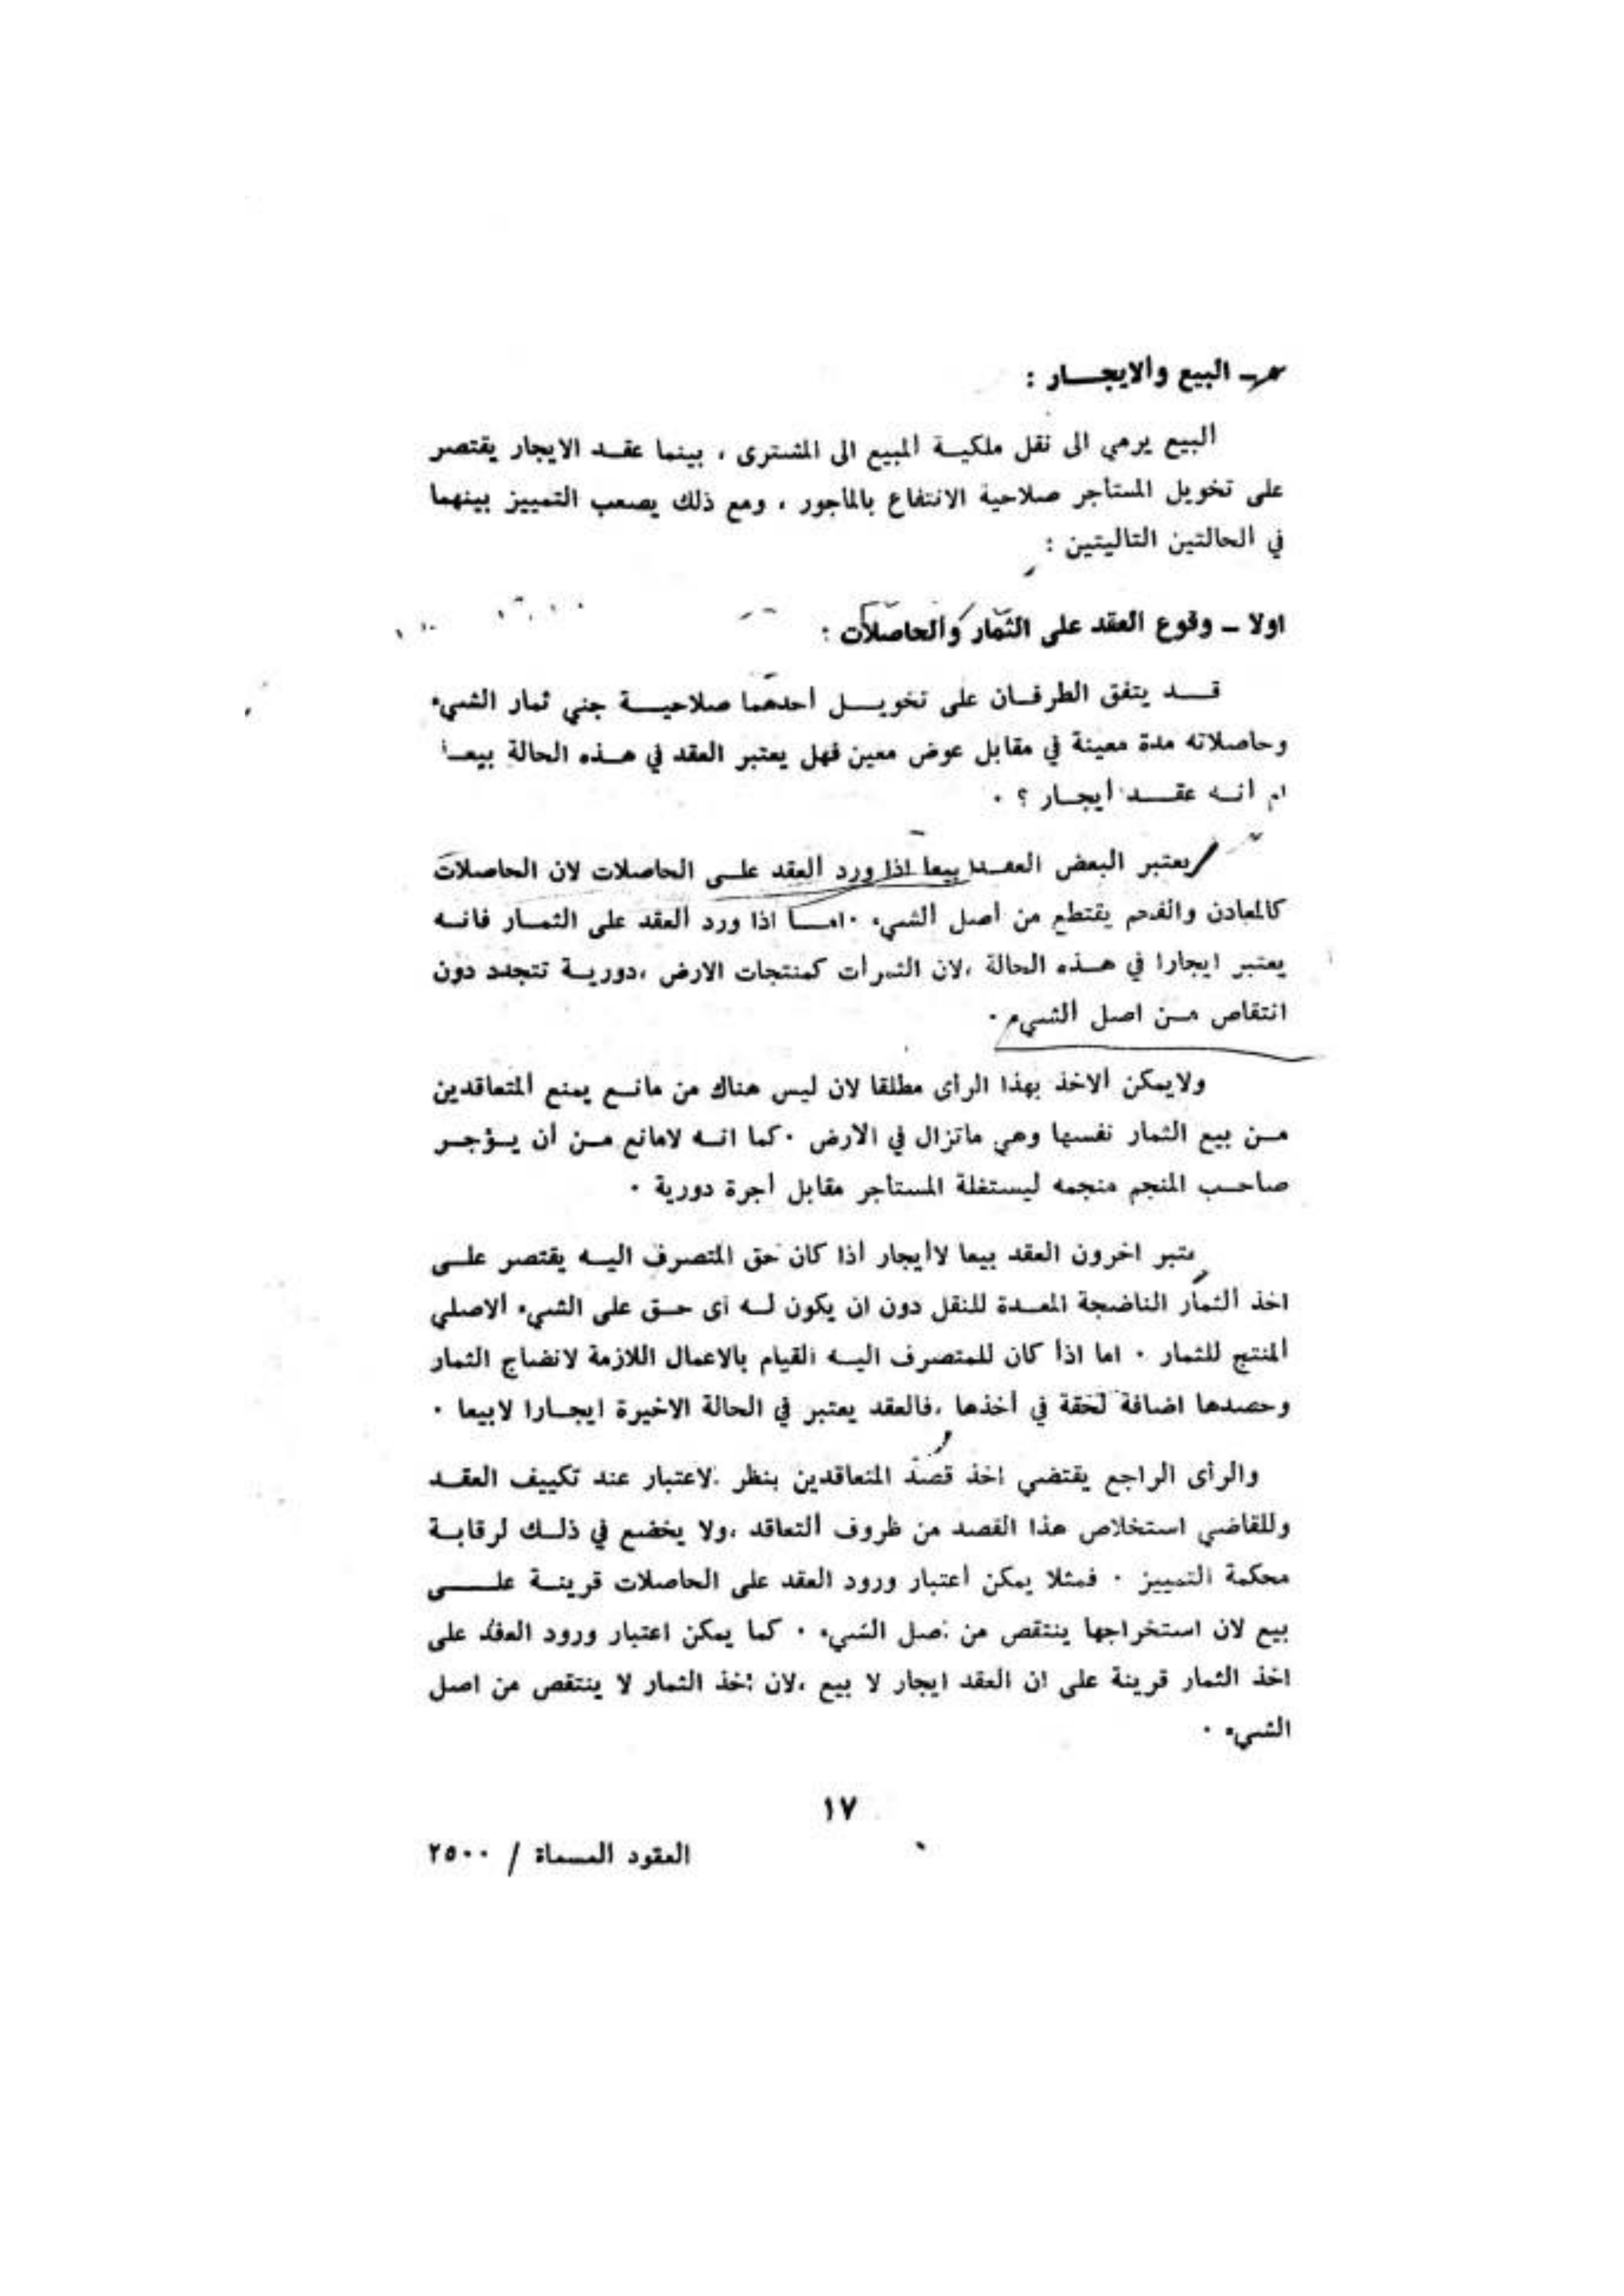 ـ البيع والايجـــار :
البيع يرمي الى نقل ملكيـة المبيع الى المشترى ، بينما عقـد الايجار يقتصر
على تخويل المستأجر صلاحية الانتفاع بالمأجور ، ومع ذلك يصعب التمييز بينهما
في الحالتين التاليتين :
اولا ـ وقوع العقد على الثمار والحاصلات :
قـــد يتفق الطرفـان على تخويـــل أحدهما صلاحيـــة جني ثمار الشيء
وحاصلاته مدة معينة في مقابل عوض معين فهل يعتبر العقد في هـذه الحالة بيعـا
ام أنـه عقـــد أيجـار ؟ .
يعتبر البعض العقـد بيعا اذا ورد العقد علـى الحاصلات لان الحاصلات
كالمعادن والفحم يقتطع من أصل الشيء . امـا اذا ورد العقد على الثمـار فانـه
يعتبر ايجارا في هـذه الحالة ،لان الثمرات كمنتجات الارض ،دوريـة تتجدد دون
انتقاص مـن اصل الشيء .
ولايمكن الاخذ بهذا الرأى مطلقا لان ليس هناك من مانـع يمنع المتعاقدين
مـن بيع الثمار نفسها وهي ماتزال في الارض . كما انـه لامانع مـن أن يـؤجـر
صاحـب المنجم منجمه ليستغلة المستأجر مقابل أجرة دورية .
يعتبر اخرون العقد بيعا لاأيجار أذا كان حق المتصرف اليـه يقتصر علـى
اخذ الثمار الناضجة المعـدة للنقل دون ان يكون لـه أى حـق على الشيء الاصلي
المنتج للثمار . اما اذا كان للمتصرف اليـه القيام بالاعمال اللازمة لانضاج الثمار
وحصدها اضافة لحقة في أخذها ،فالعقد يعتبر في الحالة الاخيرة ايجـارا لابيعا .
والرأى الراجع يقتضي اخذ قصد المتعاقدين بنظر الاعتبار عند تكييف العقـد
وللقاضي استخلاص هذا القصد من ظروف التعاقد ،ولا يخضع في ذلـك لرقابـة
محكمة التمييز . فمثلا يمكن أعتبار ورود العقد على الحاصلات قرينـة علــــى
بيع لان استخراجها ينتقص من أصل الشيء . كما يمكن اعتبار ورود العقد على
اخذ الثمار قرينة على ان العقد ايجار لا بيع ،لان أخذ الثمار لا ينتقص من اصل
الشيء .
١٧
العقود المسماة / ٢٥٠٠